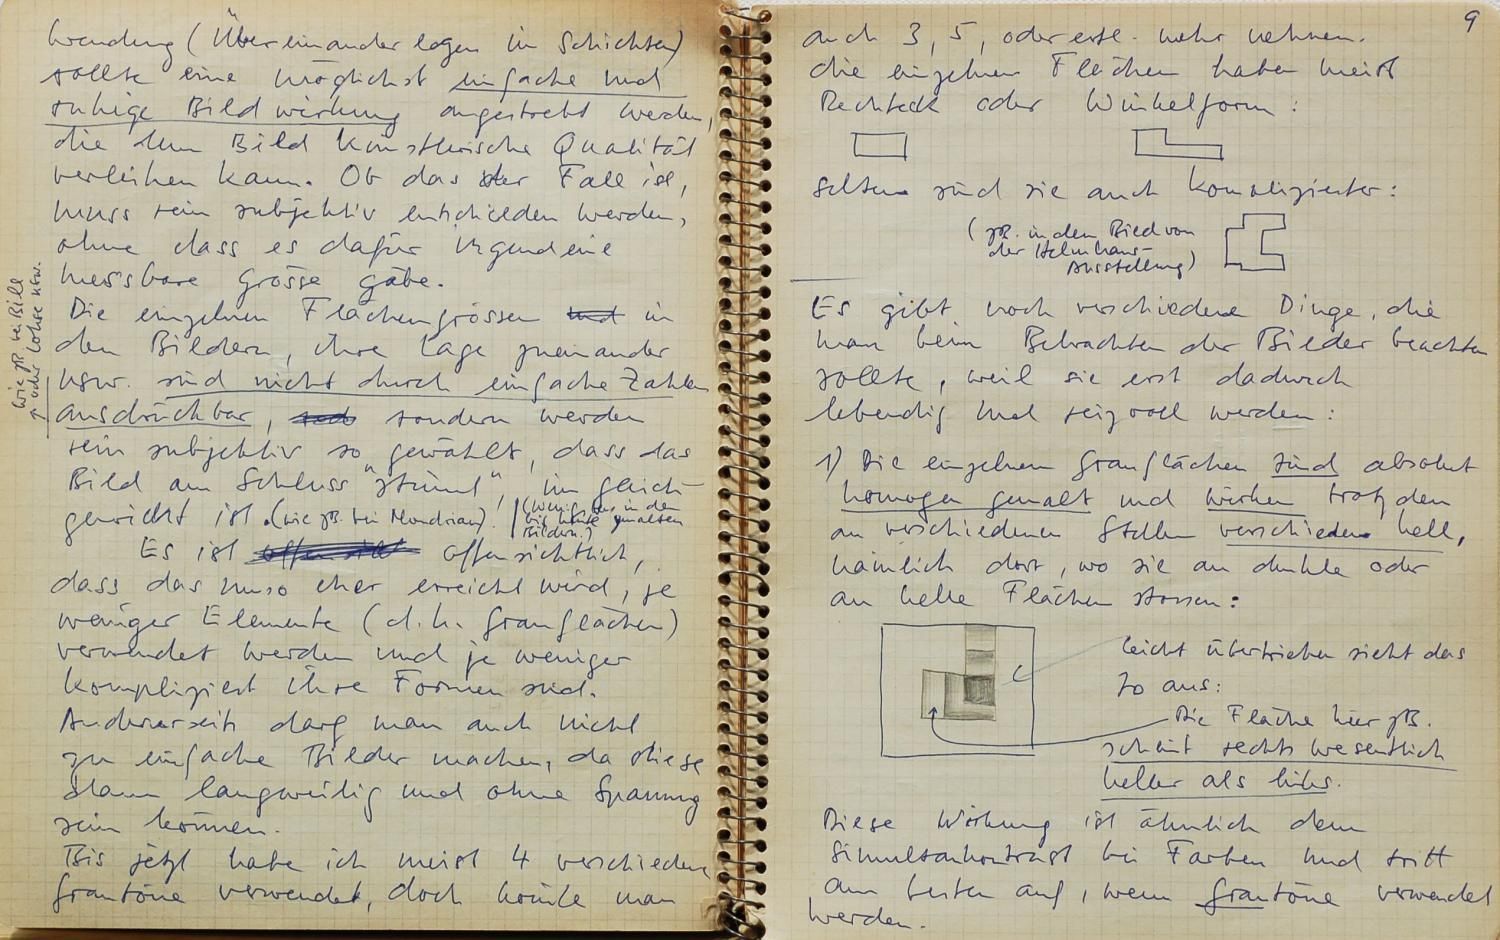 wendung (Übereinanderlagen in Schichten)
sollte eine möglichst einfache und
ruhige Bildwirkung angestrebt werden,
die dem Bild künstlerische Qualität
verleihen kann. Ob das der Fall ist,
muss rein subjektiv entschieden werden,
ohne dass es dafür irgendeine
messbare Grösse gäbe.
Die einzelnen Flächengrössen und in
den Bildern, ihre Lage zueinander
usw. sind nicht durch einfache Zahlen
ausdrückbar, sondern werden
rein subjektiv so gewählt, dass das
Bild am Schluss "stimmt", im Gleich-
gewicht ist. (wie zB. bei Mondrian).
(weniger in den
bis heute gemalten
Bildern.)
wie zB bei Bill
oder Lohse usw.
Es ist offensichtlich,
dass das umso eher erreicht wird, je
weniger Elemente (d.h. Grauflächen)
verwendet werden und je weniger
kompliziert ihre Formen sind.
Andererseits darf man auch nicht
zu einfache Bilder machen, da diese
dann langweilig und ohne Spannung
sein können.
Bis jetzt habe ich meist 4 verschiedene
Grautöne verwendet, doch könnte man
9
auch 3, 5, oder evtl. mehr nehmen.
Die einzelnen Flächen haben meist
Rechteck oder Winkelform:
Selten sind sie auch komplizierter:
(zB. in dem Bild von
der Helmhaus-
Ausstellung)
Es gibt noch verschiedene Dinge, die
man beim Betrachten der Bilder beachten
sollte, weil sie erst dadurch
lebendig und reizvoll werden:
1) Die einzelnen Grauflächen sind absolut
homogen gemalt und wirken trotzdem
an verschiedenen Stellen verschieden hell,
nämlich dort, wo sie an dunkle oder
an helle Flächen stossen:
leicht übertrieben sieht das
so aus:
Die Fläche hier zB.
scheint rechts wesentlich
heller als links.
Diese Wirkung ist ähnlich dem
Simultankontrast bei Farben und tritt
am besten auf, wenn Grautöne verwendet
werden.